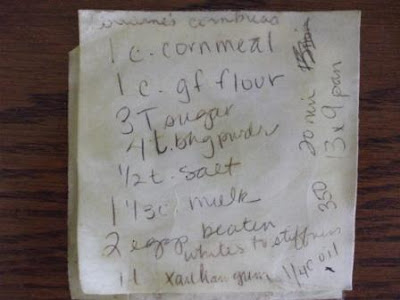 cornbread
1 c. cornmeal
1 c. gf flour
3 T sugar
4 t. bkg powder
1/2 t. salt
1 1/3 c milk
2 eggs beaten
whites to stiffness
xanthan gum 1/4 c oil
20 min
350 13x9 pan